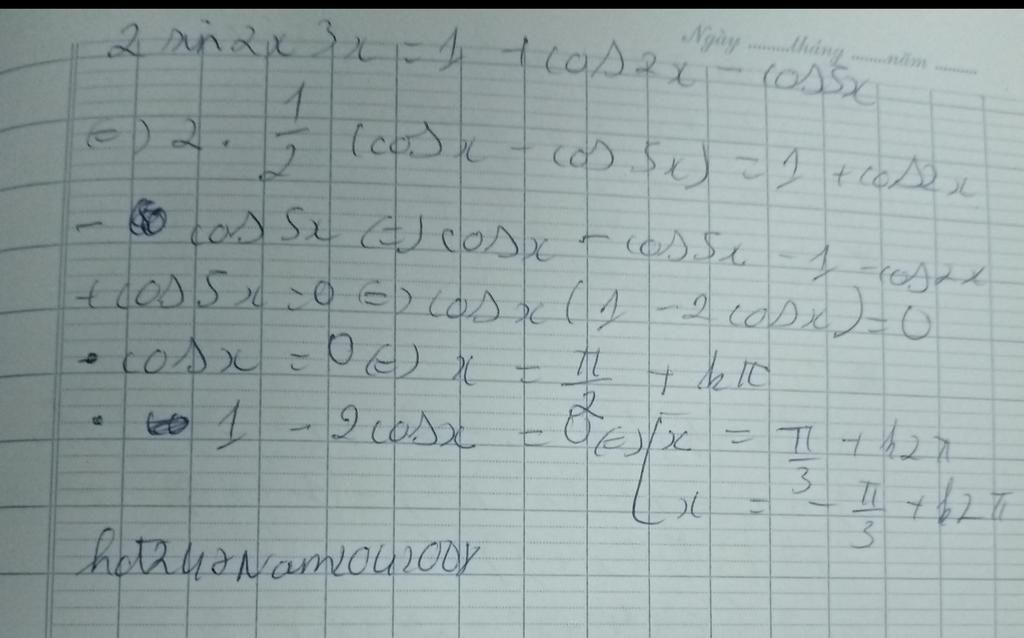 Ngày ........ tháng ........ năm ........
2 sin2x 3x = 1 + cos2x - cos5x
(=) 2 . 1/2 (cosx - cos 5x) = 1 + cos2x
- cos 5x (=) cosx - cos5x - 1 - cos2x
+ cos 5x = 0 (=) cosx (1 - 2 cosx) = 0
• cosx = 0 (=) x = π/2 + kπ
• 1 - 2cosx = 0 (=) [ x = π/3 + k2π
x = - π/3 + k2π